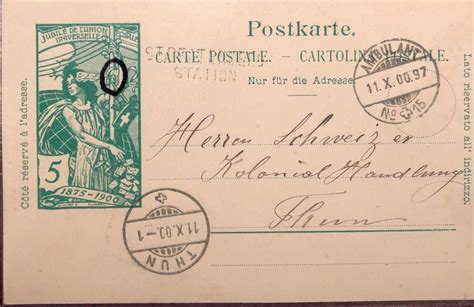 JUBILÉ DE L'UNION
UNIVERSELLE
5
1875-1900
Côté réservé à l'adresse.
Postkarte.
CARTE POSTALE. - CARTOLINA POSTALE.
STATION
Nur für die Adresse.
Lato riservato all' indirizzo.
AMBULANT
11.X.00.97
No 15
Herren Schweizer
Kolonial Handlung
Thun
11.X.00.-1
THUN